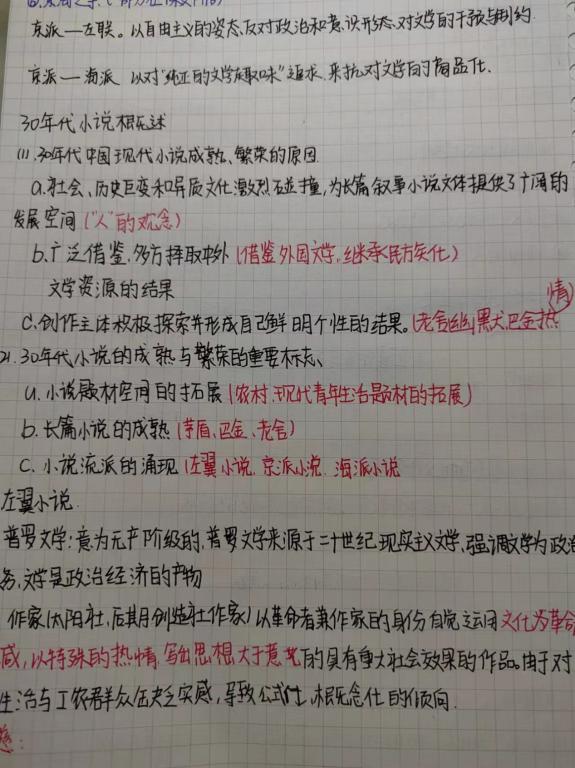 京派—左联。以自由主义的姿态,反对政治和意识形态对文学的干预与制约.
京派—海派 以对"纯正的文学趣味"追求,来抗对文学的商品化.
30年代小说概述
(1).30年代中国现代小说成熟、繁荣的原因.
a.社会、历史巨变和异质文化激烈碰撞,为长篇叙事小说文体提供了广阔的
发展空间("人"的观念)
b.广泛借鉴,多方择取中外(借鉴外国文学,继承民族文化)
文学资源的结果
情)
C.创作主体积极探索并形成自己鲜明个性的结果。(老舍幽默,巴金热
2).30年代小说的成熟与繁荣的重要标志、
a.小说题材空间的拓展(农村、现代青年生活题材的拓展)
b.长篇小说的成熟(茅盾、巴金、老舍)
C.小说流派的涌现(左翼小说,京派小说,海派小说
左翼小说.
普罗文学:意为无产阶级的,普罗文学来源于二十世纪现实主义文学,强调文学为政治
务,文学是政治经济的产物
作家(太阳社,后期创造社作家)以革命者兼作家的身份自觉运用文化为革命
感,以特殊的热情,写出思想大于艺术的具有重大社会效果的作品。由于对
生活与工农群众缺乏实感,导致公式化、概念化的倾向.